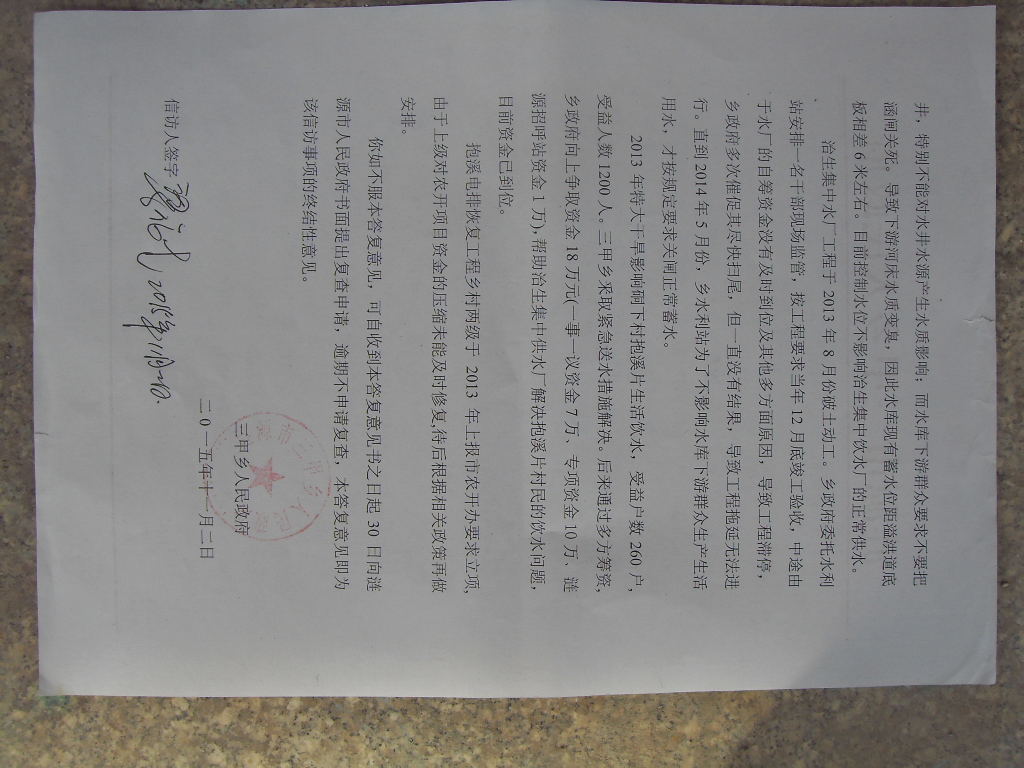 井，特别不能对水井水源产生水质影响；而水库下游群众要求不要把
涵闸关死。导致下游河床水质变臭，因此水库现有蓄水位距溢洪道底
板相差6米左右。目前控制水位不影响治生集中饮水厂的正常供水。
治生集中水厂工程于2013年8月份破土动工。乡政府委托水利
站安排一名干部现场监管，按工程要求当年12月底竣工验收，中途由
于水厂的自筹资金没有及时到位及其他多方面原因，导致工程滞停，
乡政府多次催促其尽快扫尾，但一直没有结果，导致工程拖延无法进
行。直到2014年5月份，乡水利站为了不影响水库下游群众生产生活
用水，才按规定要求关闸正常蓄水。
2013年特大干旱影响峒下村抱溪片生活饮水，受益户数260户，
受益人数1200人。三甲乡采取紧急送水措施解决。后来通过多方筹资，
乡政府向上争取资金18万元(一事一议资金7万、专项资金10万、涟
源招呼站资金1万),帮助治生集中供水厂解决抱溪片村民的饮水问题，
目前资金已到位。
抱溪电排恢复工程乡村两级于2013年上报市农开办要求立项，
由于上级对农开项目资金的压缩未能及时修复,待后根据相关政策再做
安排。
你如不服本答复意见，可自收到本答复意见书之日起30日向涟
源市人民政府书面提出复查申请，逾期不申请复查，本答复意见即为
该信访事项的终结性意见。
信访人签字
三甲乡人民政府
二〇一五年十一月二日